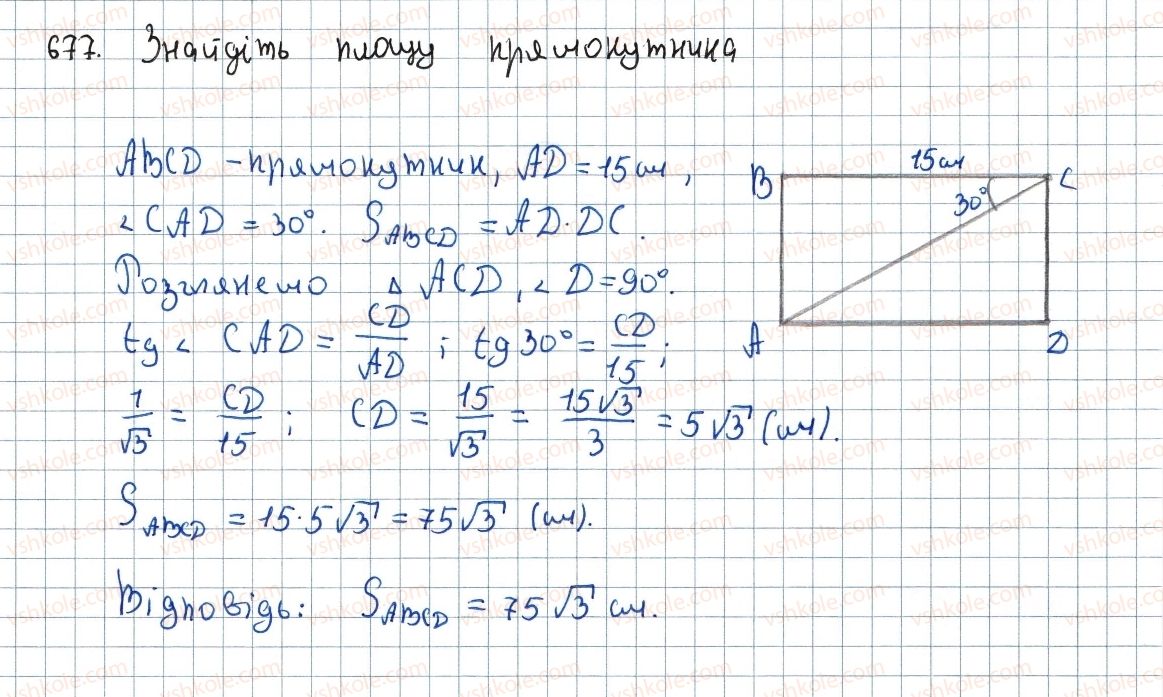 677. Знайдіть площу прямокутника
ABCD – прямокутник, AD = 15 см,
∠CAD = 30°. S_ABCD = AD·DC.
Розглянемо △ACD, ∠D = 90°.
tg∠CAD = CD/AD; tg30° = CD/15;
1/√3 = CD/15; CD = 15/√3 = 15√3/3 = 5√3 (см).
S_ABCD = 15·5√3 = 75√3 (см).
Відповідь: S_ABCD = 75√3 см.
B 15см C
30°
A D
vshkole.com